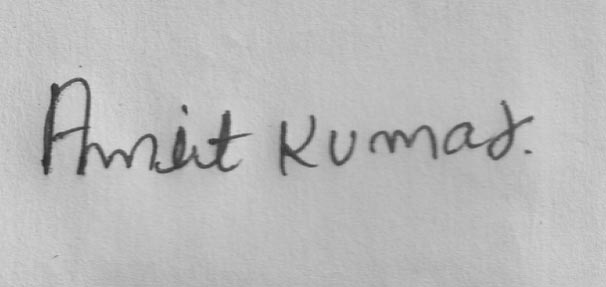 Amit Kumar.